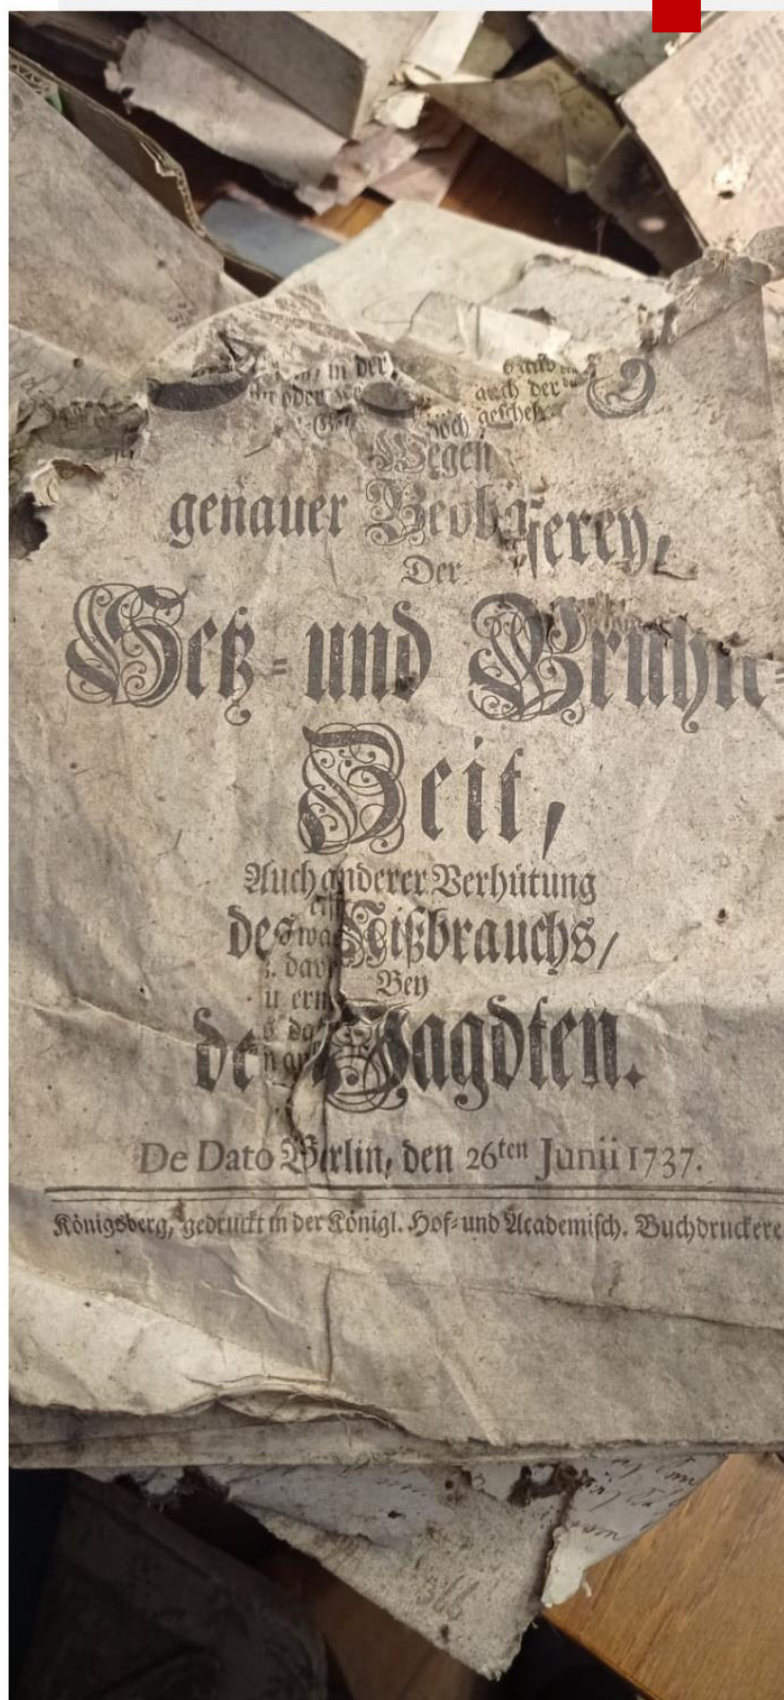 in der
auch der
Noch geschehe
Wegen
genauer Beob
serey,
Der
Setz- und Bruhn-
Zeit,
Auch anderer Verhütung
des Mißbrauchs/
Bey
den Jagdten.
De Dato Berlin, den 26ten Junii 1737.
Königsberg, gedruckt in der Königl. Hof- und Academisch. Buchdruckere